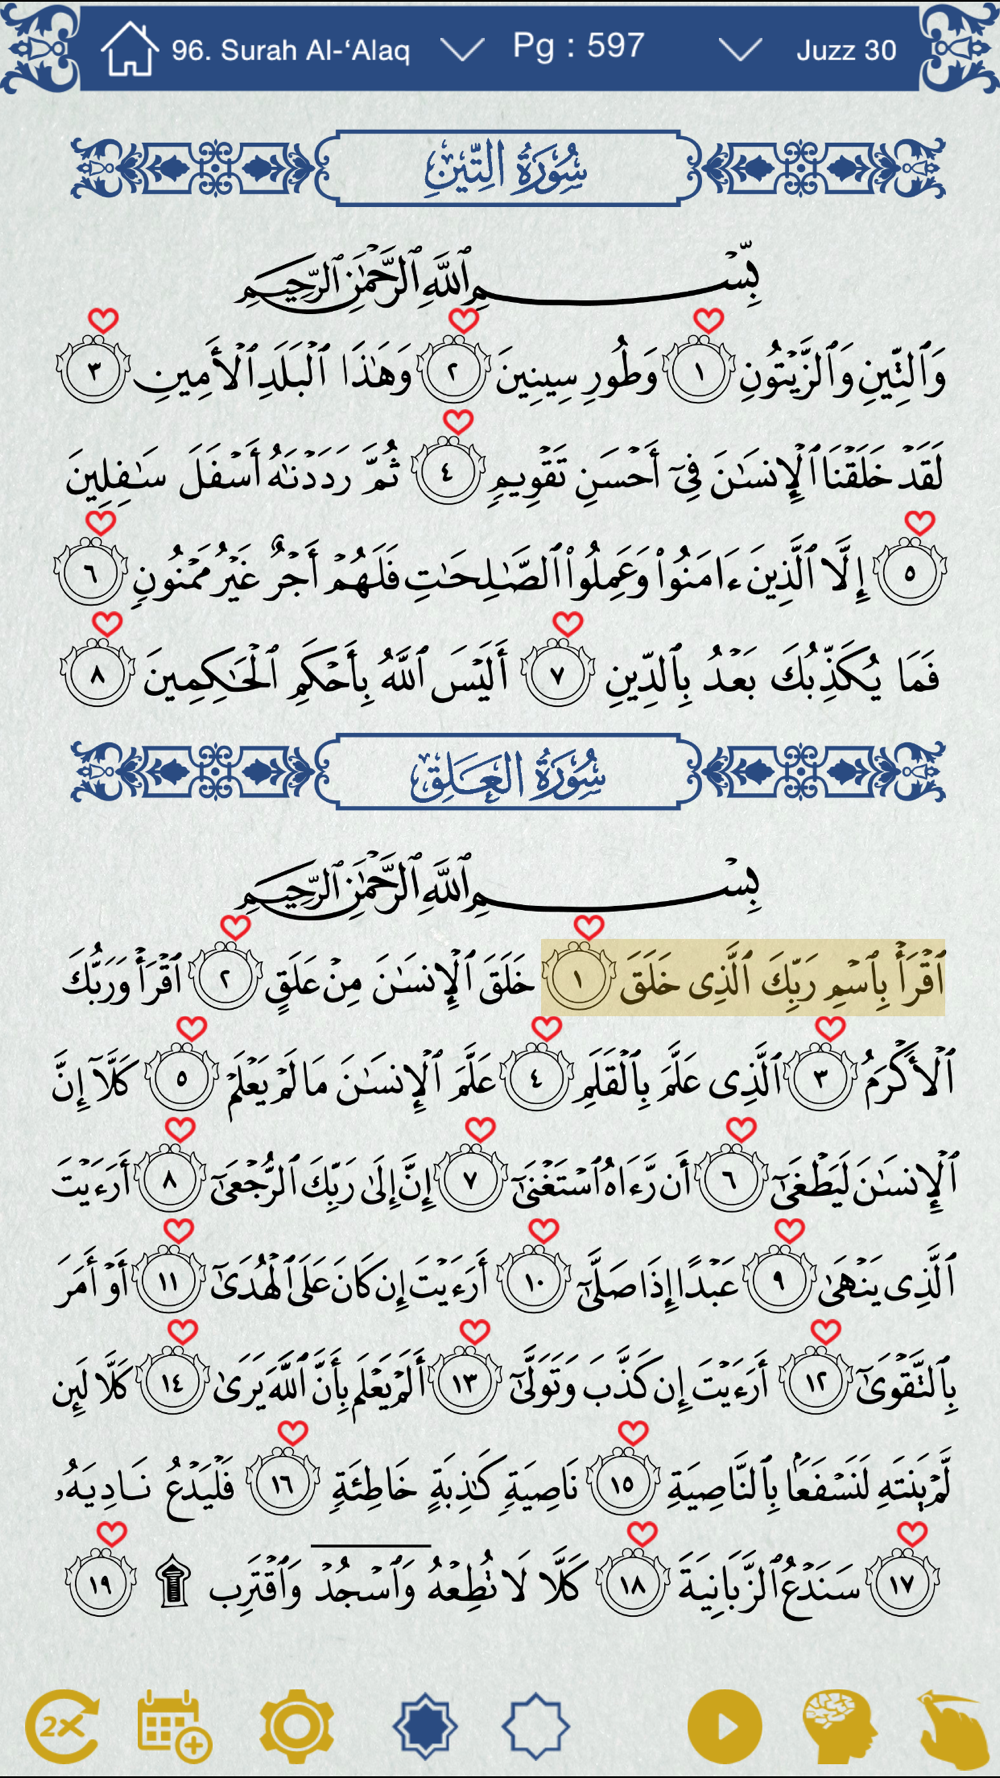 96. Surah Al-‘Alaq Pg : 597 Juzz 30
سُورَةُ التِّينِ
بِّسْمِ ٱللَّهِ ٱلرَّحْمَٰنِ ٱلرَّحِيمِ
وَٱلتِّينِ وَٱلزَّيْتُونِ ١ وَطُورِ سِينِينَ ٢ وَهَٰذَا ٱلْبَلَدِ ٱلْأَمِينِ ٣
لَقَدْ خَلَقْنَا ٱلْإِنسَٰنَ فِىٓ أَحْسَنِ تَقْوِيمٍ ٤ ثُمَّ رَدَدْنَٰهُ أَسْفَلَ سَٰفِلِينَ
٥ إِلَّا ٱلَّذِينَ ءَامَنُوا۟ وَعَمِلُوا۟ ٱلصَّٰلِحَٰتِ فَلَهُمْ أَجْرٌ غَيْرُ مَمْنُونٍ ٦
فَمَا يُكَذِّبُكَ بَعْدُ بِٱلدِّينِ ٧ أَلَيْسَ ٱللَّهُ بِأَحْكَمِ ٱلْحَٰكِمِينَ ٨
سُورَةُ العَلَقِ
بِسْمِ ٱللَّهِ ٱلرَّحْمَٰنِ ٱلرَّحِيمِ
ٱقْرَأْ بِٱسْمِ رَبِّكَ ٱلَّذِى خَلَقَ ١ خَلَقَ ٱلْإِنسَٰنَ مِنْ عَلَقٍ ٢ ٱقْرَأْ وَرَبُّكَ
ٱلْأَكْرَمُ ٣ ٱلَّذِى عَلَّمَ بِٱلْقَلَمِ ٤ عَلَّمَ ٱلْإِنسَٰنَ مَا لَمْ يَعْلَمْ ٥ كَلَّآ إِنَّ
ٱلْإِنسَٰنَ لَيَطْغَىٰٓ ٦ أَن رَّءَاهُ ٱسْتَغْنَىٰٓ ٧ إِنَّ إِلَىٰ رَبِّكَ ٱلرُّجْعَىٰٓ ٨ أَرَءَيْتَ
ٱلَّذِى يَنْهَىٰ ٩ عَبْدًا إِذَا صَلَّىٰٓ ١٠ أَرَءَيْتَ إِن كَانَ عَلَى ٱلْهُدَىٰٓ ١١ أَوْ أَمَرَ
بِٱلتَّقْوَىٰٓ ١٢ أَرَءَيْتَ إِن كَذَّبَ وَتَوَلَّىٰٓ ١٣ أَلَمْ يَعْلَم بِأَنَّ ٱللَّهَ يَرَىٰ ١٤ كَلَّا لَئِن
لَّمْ يَنتَهِ لَنَسْفَعًۢا بِٱلنَّاصِيَةِ ١٥ نَاصِيَةٍ كَٰذِبَةٍ خَاطِئَةٍ ١٦ فَلْيَدْعُ نَادِيَهُۥ
١٧ سَنَدْعُ ٱلزَّبَانِيَةَ ١٨ كَلَّا لَا تُطِعْهُ وَٱسْجُدْ وَٱقْتَرِب ۩ ١٩
2X